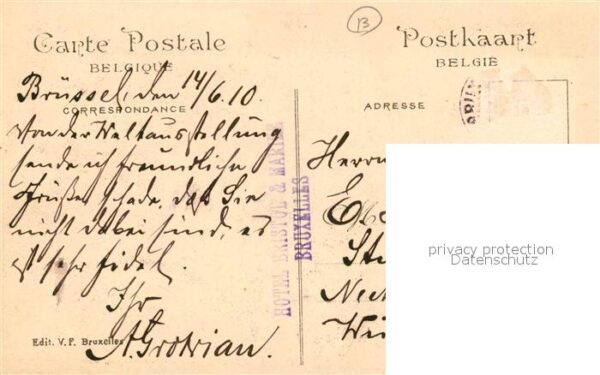 B
Carte Postale
BELGIQUE
Postkaart
BELGIË
Brüssel, den 14/6.10.
CORRESPONDANCE
ADRESSE
Von der Weltausstellung
sende ich freundliche
Grüße. Schade, daß Sie
nicht dabei sind, es
ist sehr fidel.
Ihr
A. Grotrian.
HOTEL BRISTOL & MARINE
BRUXELLES
Herrn
privacy protection
Datenschutz
Edit. V. F. Bruxelles